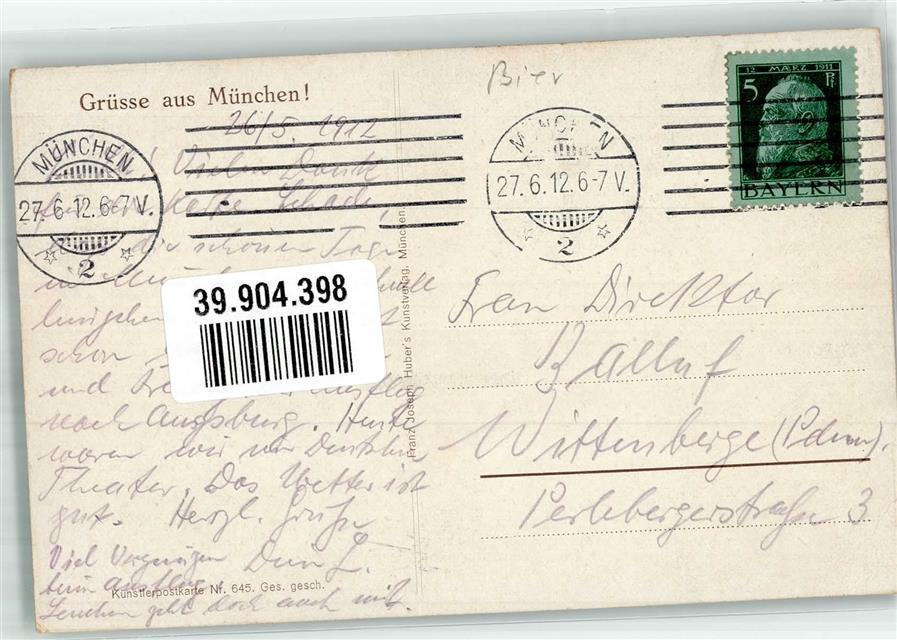 Grüsse aus München!
Bier
26/5. 1912
MÜNCHEN
27.6.12.6-7V.
2
MÜNCHEN
27.6.12.6-7V.
2
12 MÆRZ 1911
5 Pf
BAYERN
Vielen Dank
Karte. Schade,
die schönen Tage
39.904.398
schon
und
nach Augsburg. Heute
waren wir im Deutschen
Theater. Das Wetter ist
gut. Herzl. Grüße
Dein L.
Viel Vergnügen
beim Ausflug.
Lenchen geht doch auch mit.
Künstlerpostkarte Nr. 645. Ges. gesch.
Franz Joseph Huber's Kunstverlag, München.
Frau Direktor
Balluf
Wittenberge
Perlebergerstraße 3